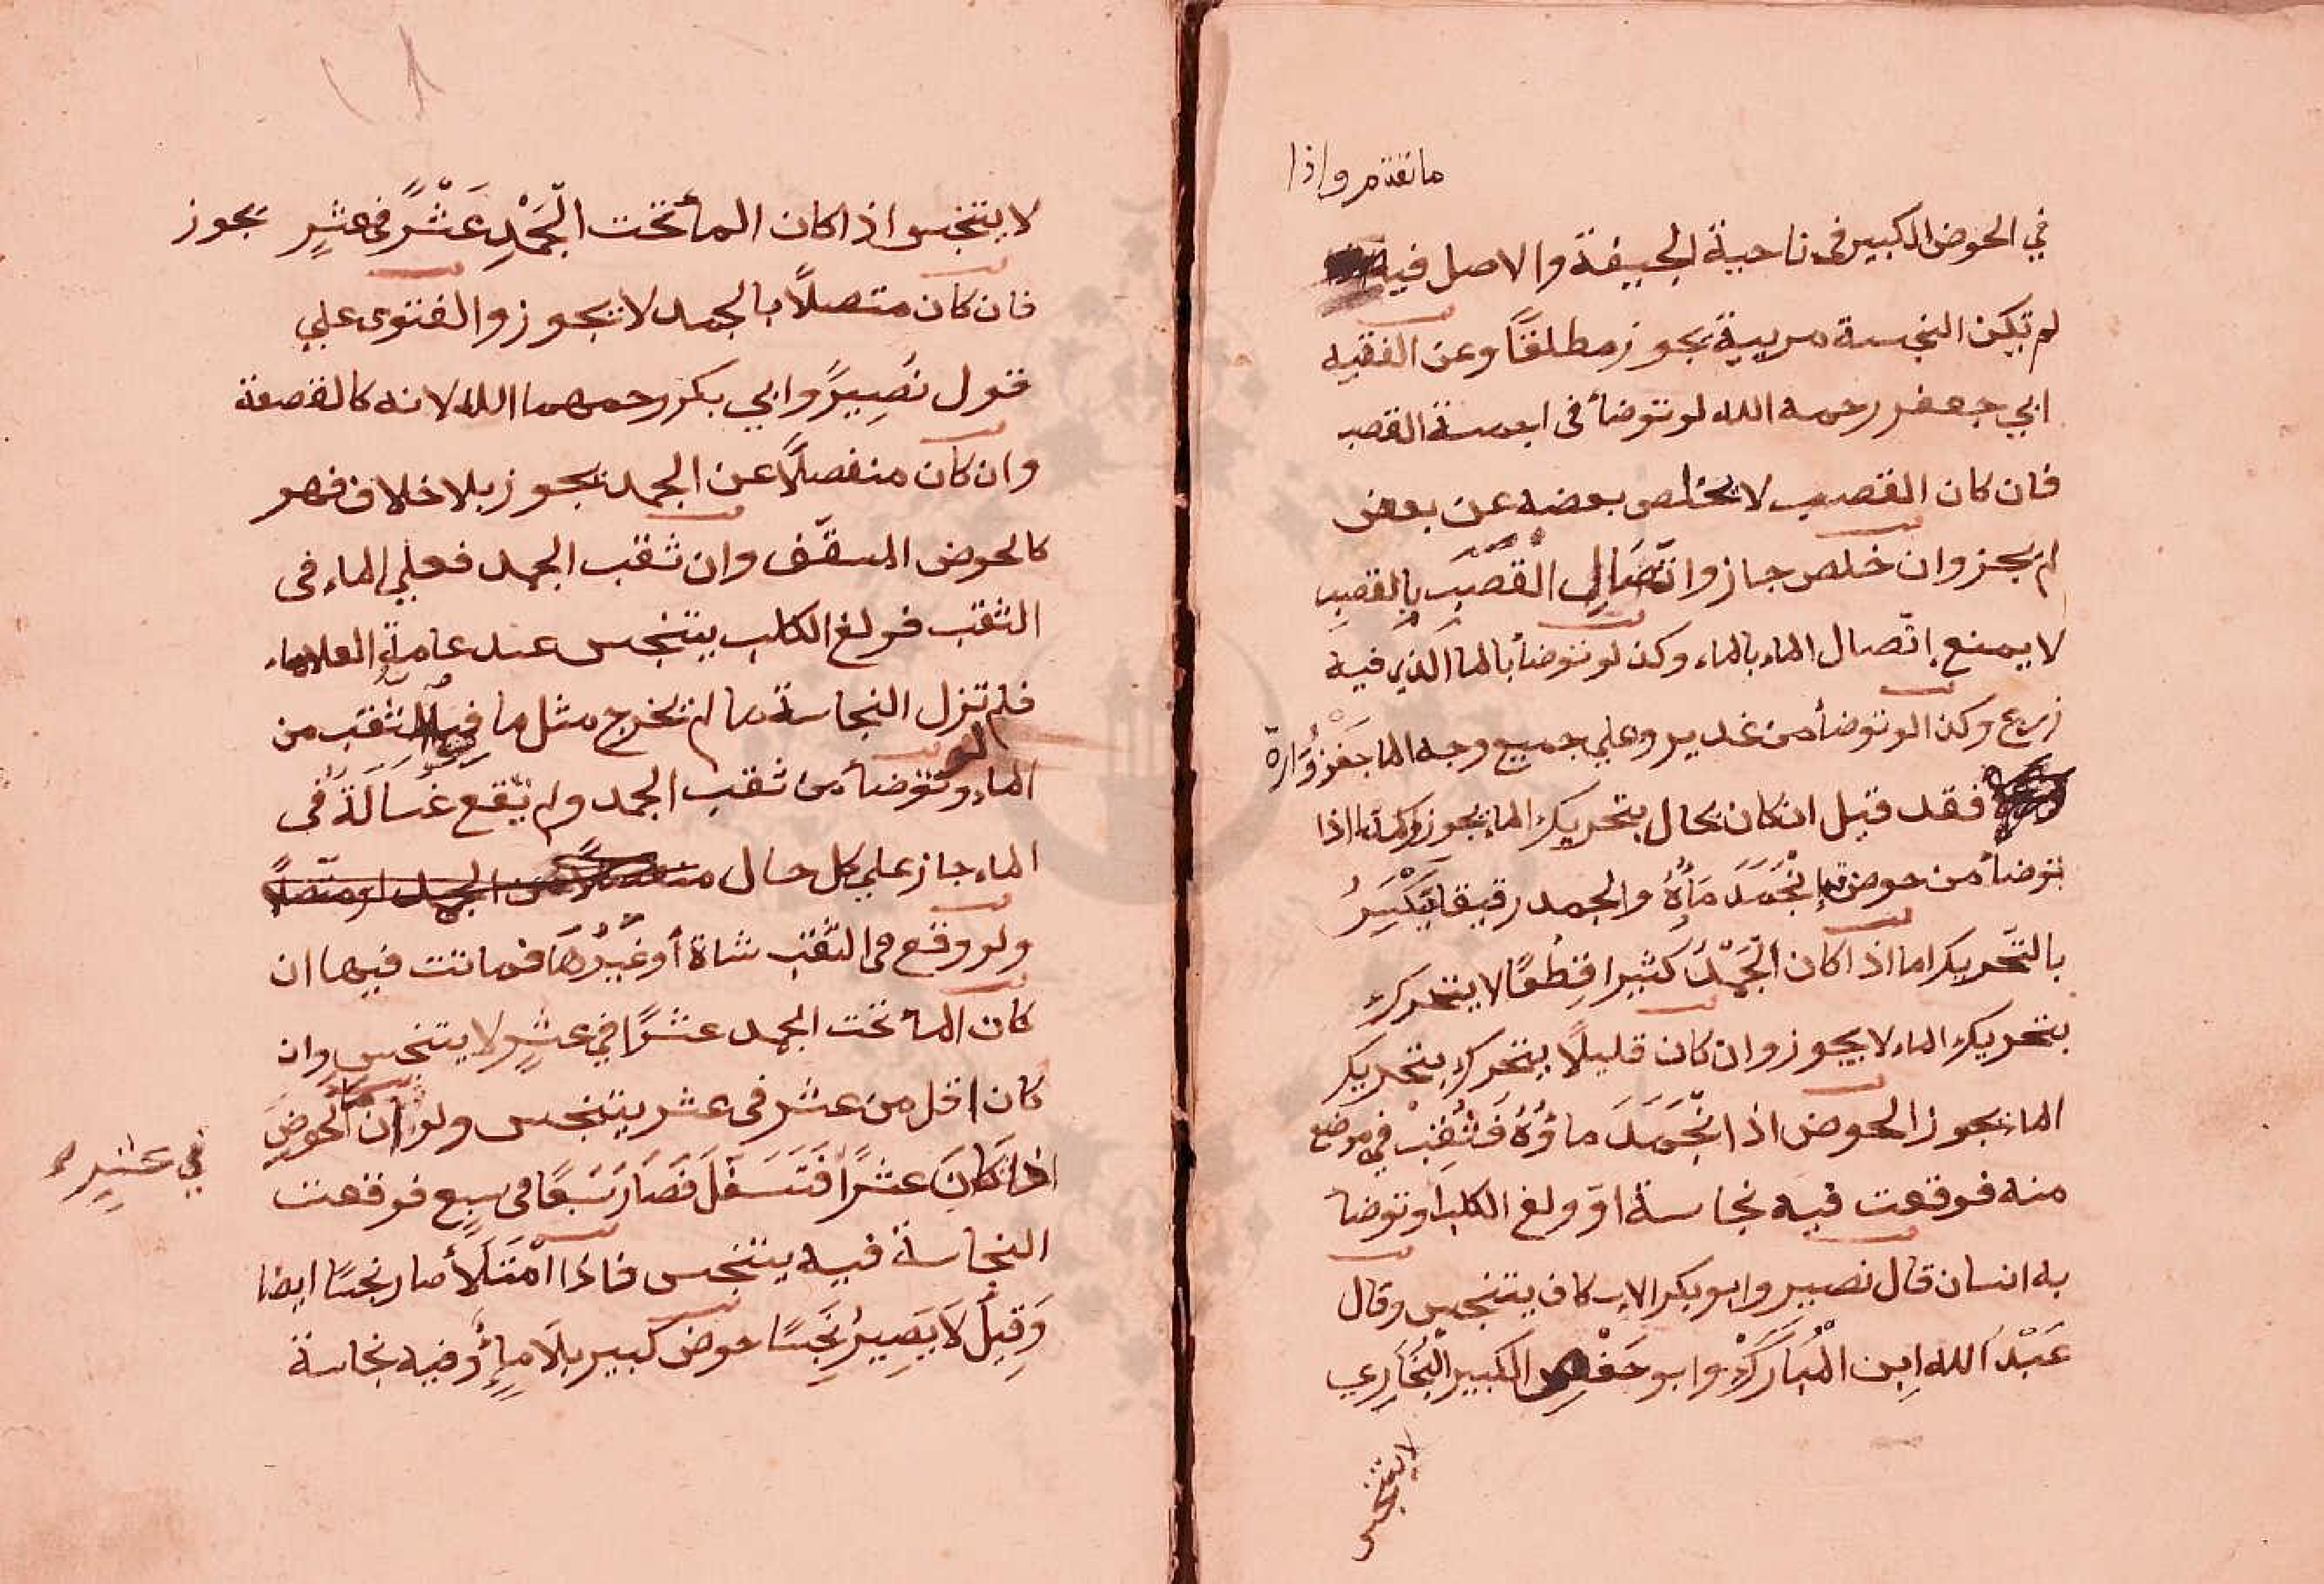 ما تقدم واذا
في الحوض الكبير في ناحية الجيفة والاصل فيه
لم تكن النجسة مريية يجوز مطلقًا وعن الفقيه
ابي جعفر رحمه الله لو توضأ في القصب
فان كان القصب لا يخلص بعضه عن بعض
لم يجز وان خلص جاز واتّصَالِ القَصَبِ بِالقصبِ
لا يمنع اتّصال الماء بالماء وكذ لو توضأ بالما الذي فيه
زرع وكذا لو توضأ من غدير وعلي جميع وجه الما جَغْزُوَارة
فقد قيل ان كان بحال بتحريك الما يجوز وكذا اذا
توضأ من حوض اِنْجَمَدَ مَاؤُهُ والجمد رقيقا يَنْكَسِرُ
بالتحريك اما اذا كان الْجَمْدُ كثيرا قِطْعًا لا يتحرك
بتحريك الماء لا يجوز وان كان قليلًا يتحرك بتحريك
الما يجوز الحوض اذا انْجَمَدَ ماؤُهُ فَثُقِبَ في موضع
منه فوقعت فيه نجاسة او ولغ الكلب او توضا
به انسان قال نصير وابو بكر الاسكاف يتنجس وقال
عَبْدُ الله اِبن الْمُبَارَكْ وابو حَفْصِ الكبير الْبُخَارِي
لا يتنجس
لا يتنجس اذا كان المأ تحت الْجَمْدِ عَشْرًا في عشرٍ يجوز
فان كان متصلًا بالجمد لا يجوز والفتوى علي
قول نَصِيرٍ وابي بكر رحمهما الله لانه كالقصعة
وان كان منفصلًا عن الجمد يجوز بلا خلاف فهو
كالحوض المسقّف وان ثقب الجمد فعلي الماء في
الثقب فولغ الكلب يتنجس عند عامة العلماء
فلم تزل النجاسة ما لم تخرج مثل ما في الثقب من
الماء ولو توضأ من ثقب الجمد ولم يَقع غَسَالَةَ في
الماء جاز علي كل حال
ولو وقع في الثَّقْبِ شاة أو غَيْرُهَا فماتت فيها ان
كان المأ تحت الجمد عشرًا في عشرٍ لا يتنجس وان
كان اقل من عشر في عشر يتنجس ولو ان الحوض
اذا كَانَ عشْرًا فَتَسَفَّلَ فَصَارَ سَبعًا في سبع فوقعت
في عَشرٍ
النجاسة فيه يتنجس فاذا اَمْتَلَأَ صار نجسًا ايضا
وَقِيلَ لَا يَصِيرُ نَجِسًا حوض كبير بلَا مِاءٍ وفيه نجاسة